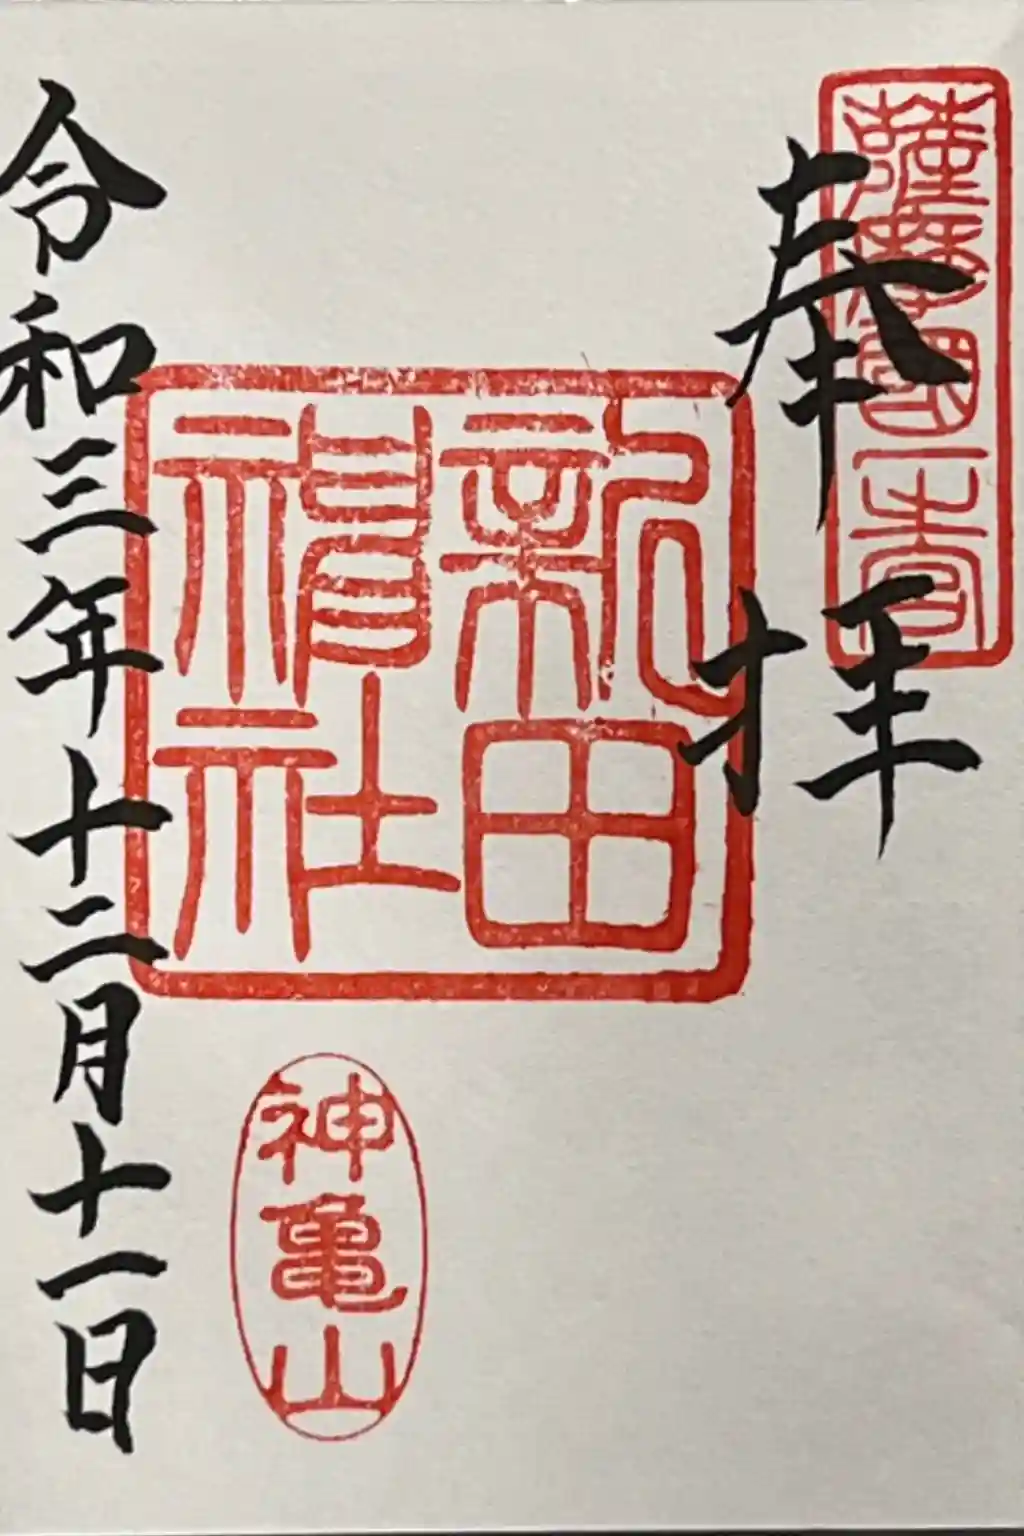 薩摩國一宮
奉拝
新田神社
神亀山
令和三年十二月十一日